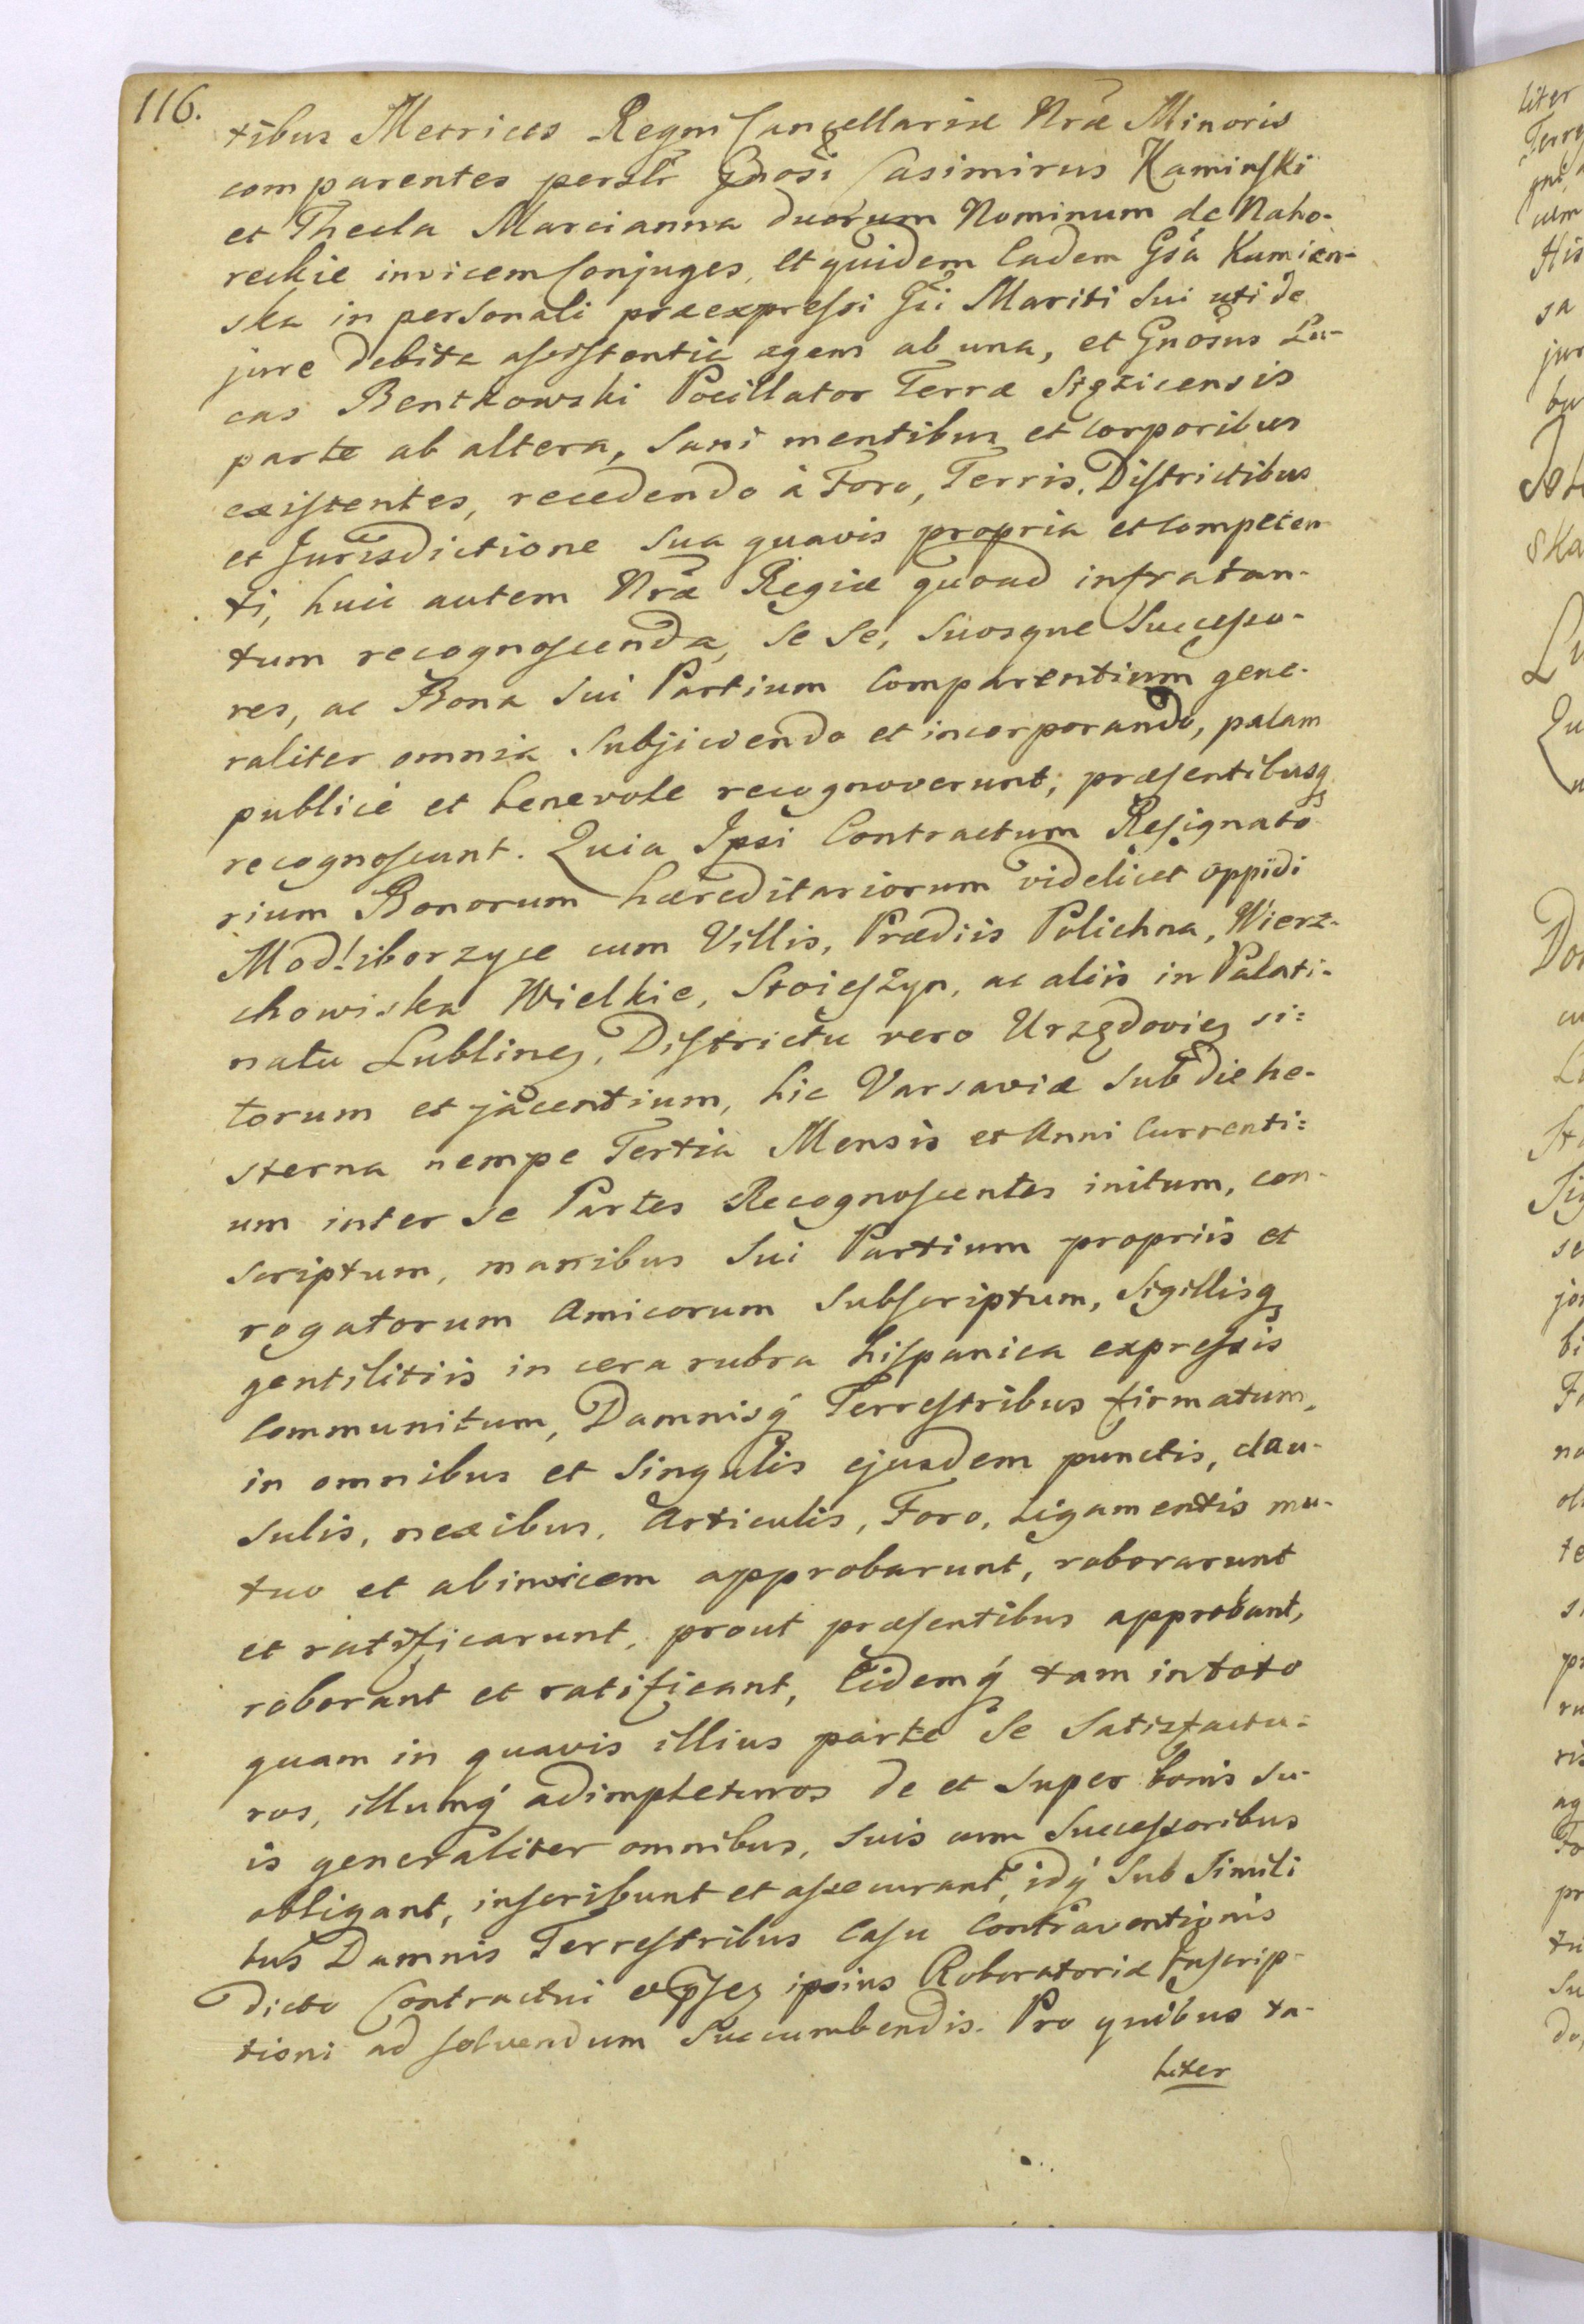 116.
tibus Metrices Regm Cancellariæ Nræ Minoris
comparentes persltr Gnosi Casimirus Kaminski
et Thecla Marcianna duorum Nominum de Naho-
reckie invicem Conjuges, et quidem Eadem Gsa Kamien-
ska in personali præexpressi Gsi Mariti Sui uti de
jure debita assistentia agens ab una, et Gnosus Lu-
cas Bentkowski Pocillator Terræ Stęzicensis
parte ab altera, Sani mentibus et Corporibus
existentes, recedendo à Foro, Terris, Districtibus
et Jurisdictione Sua quavis propria et Competen
ti, huic autem Nræ Regiæ quoad infratan-
tum recognoscenda, Se Se, Suosque Successo-
res, ac Bona Sui Partium Comparentium gene-
raliter omnia Subjiciendo et incorporando, palam
publicè et benevole recognoverunt, præsentibusq
recognoscunt. Quia Ipsi Contractum Resignato
rium Bonorum hæreditariorum videlicet Oppidi
Modliborzyce cum Villis, Prædiis Polichna, Wierz-
chowiska Wielkie, Stojeszyn, ac aliis in Palati-
natu Lublineq, Districtu vero Urzędovieq si=
torum et jacentium, hic Varsaviæ Sub die he-
sterna nempe Tertia Mensis et Anni Currenti=
um inter Se Partes Recognoscentes initum, con-
scriptum, manibus Sui Partium propriis et
rogatorum Amicorum Subscriptum, Sigillisq
gentilitiis in cera rubra hispanica expressis
Communitum, Damnisq Terrestribus firmatum,
in omnibus et Singulis ejusdem punctis, clau-
sulis, nexibus, Articulis, Foro, Ligamentis mu-
tuo et abinvicem approbarunt, roborarunt
et ratificarunt, prout præsentibus approbant,
roborant et ratificant, Eidemq tam in toto
quam in quavis illius parte Se Satisfactu=
ros, illumq adimpleturos de et Super bonis Su-
is generaliter omnibus, Suis cum Successoribus
obligant, inscribunt et assecurant, idq Sub Simili
bus Damnis Terrestribus Casu Contraventionis
dicto Contractui ipsius Roboratoriæ Inscrip-
tioni ad solvendum Succumbendis. Pro quibus ta-
liter